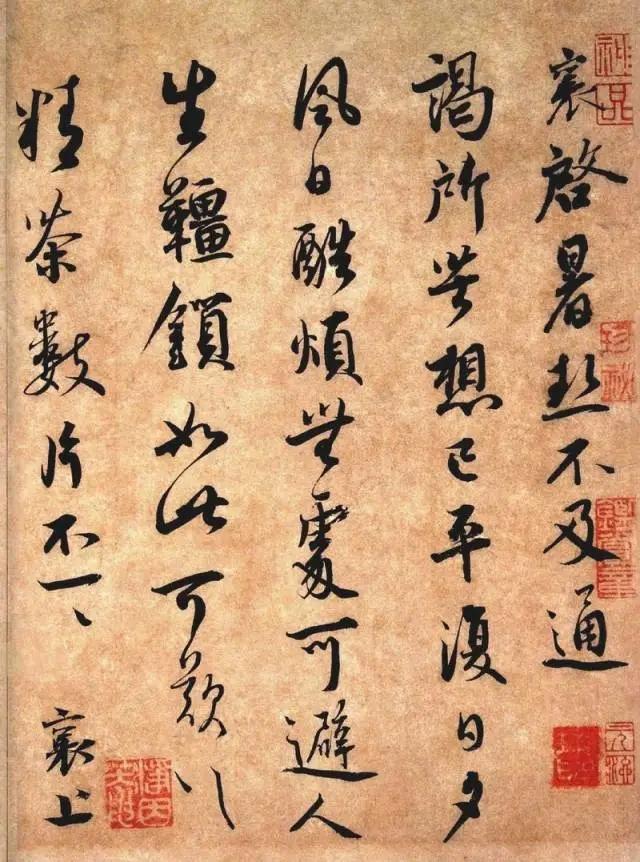 襄啓暑熱不及通
謁所苦想已平復日夕
風日酷煩無處可避人
生韁鎖如此可歎〻
精茶數片不一〻
襄上
神品
珍秘